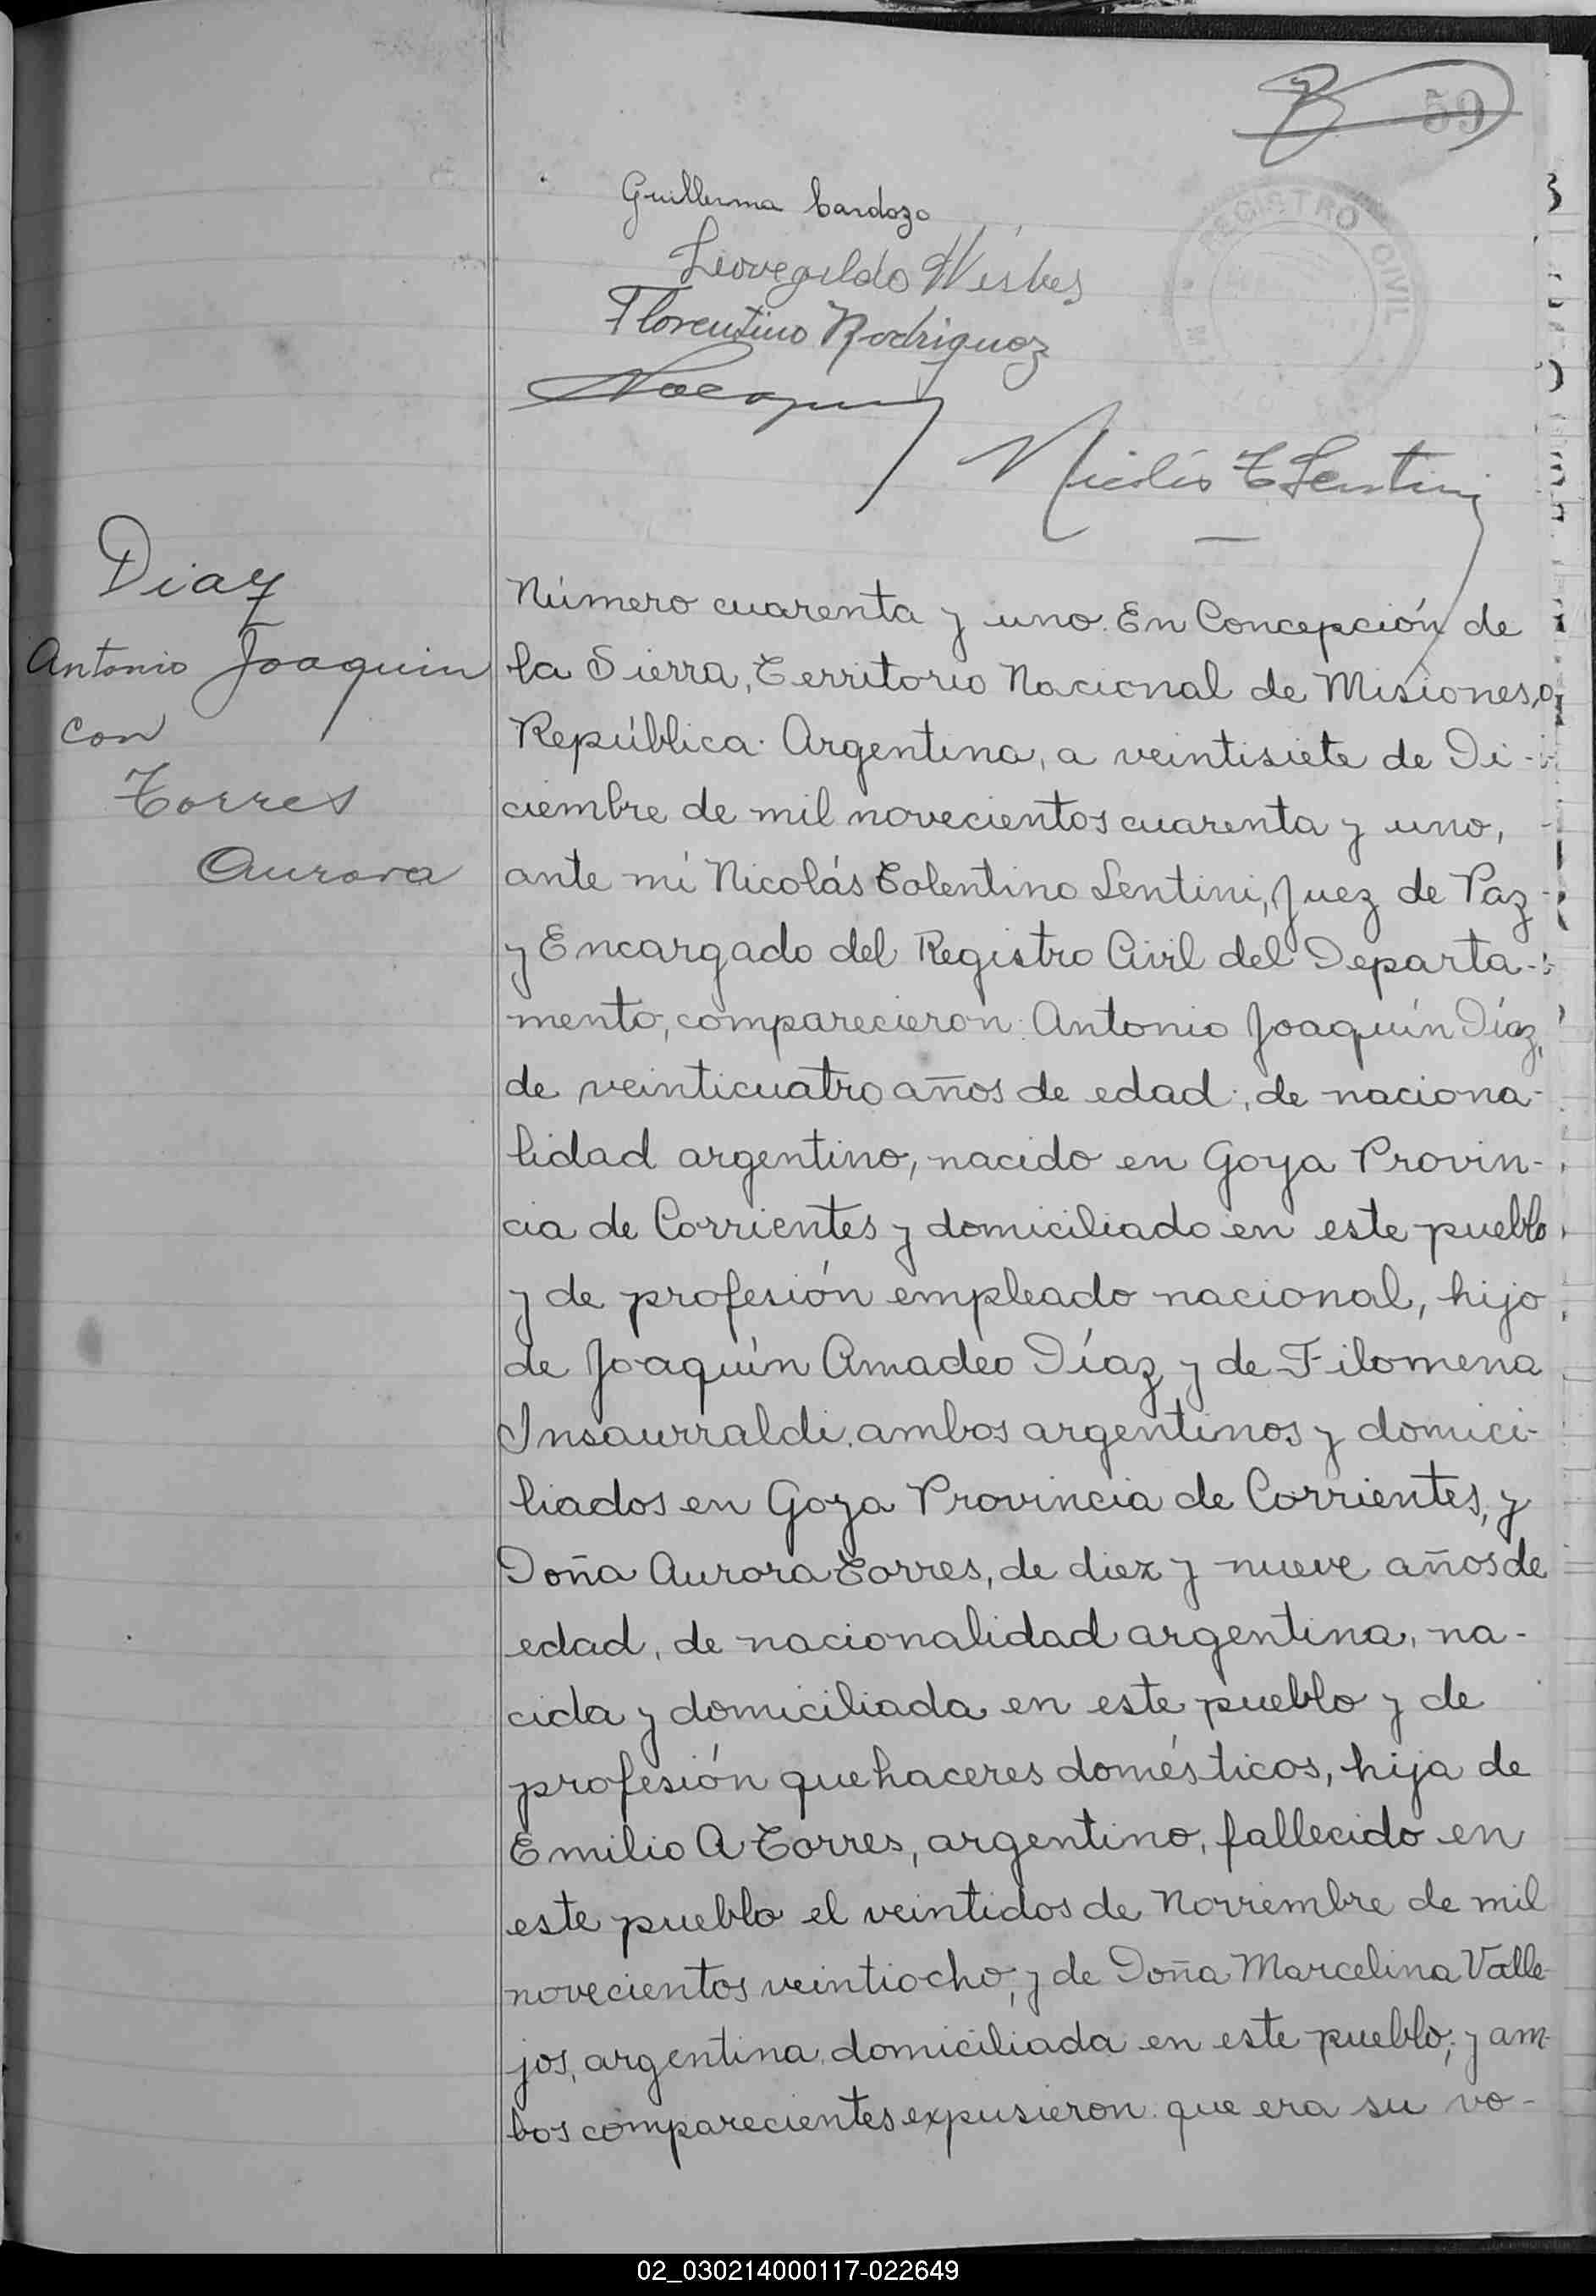 59
Guillerma Cardozo
REGISTRO CIVIL
Florentino Rodriguez
Nicolás T Lentini
Diaz
Antonio Joaquin
con
Torres
Aurora
Número cuarenta y uno. En Concepción de
la Sierra, Territorio Nacional de Misiones,
República Argentina, a veintisiete de Di-
ciembre de mil novecientos cuarenta y uno,
ante mí Nicolás Tolentino Lentini, Juez de Paz
y Encargado del Registro Civil del Departa-
mento, comparecieron: Antonio Joaquín Díaz,
de veinticuatro años de edad, de naciona-
lidad argentino, nacido en Goya Provin-
cia de Corrientes y domiciliado en este pueblo
y de profesión empleado nacional, hijo
de Joaquín Amadeo Díaz y de Filomena
Insaurraldi, ambos argentinos y domici-
liados en Goya Provincia de Corrientes, y
Doña Aurora Torres, de diez y nueve años de
edad, de nacionalidad argentina, na-
cida y domiciliada en este pueblo y de
profesión quehaceres domésticos, hija de
Emilio A Torres, argentino, fallecido en
este pueblo el veintidos de Noviembre de mil
novecientos veintiocho, y de Doña Marcelina Valle-
jos, argentina, domiciliada en este pueblo; y am-
bos comparecientes expusieron que era su vo-
02_030214000117-022649